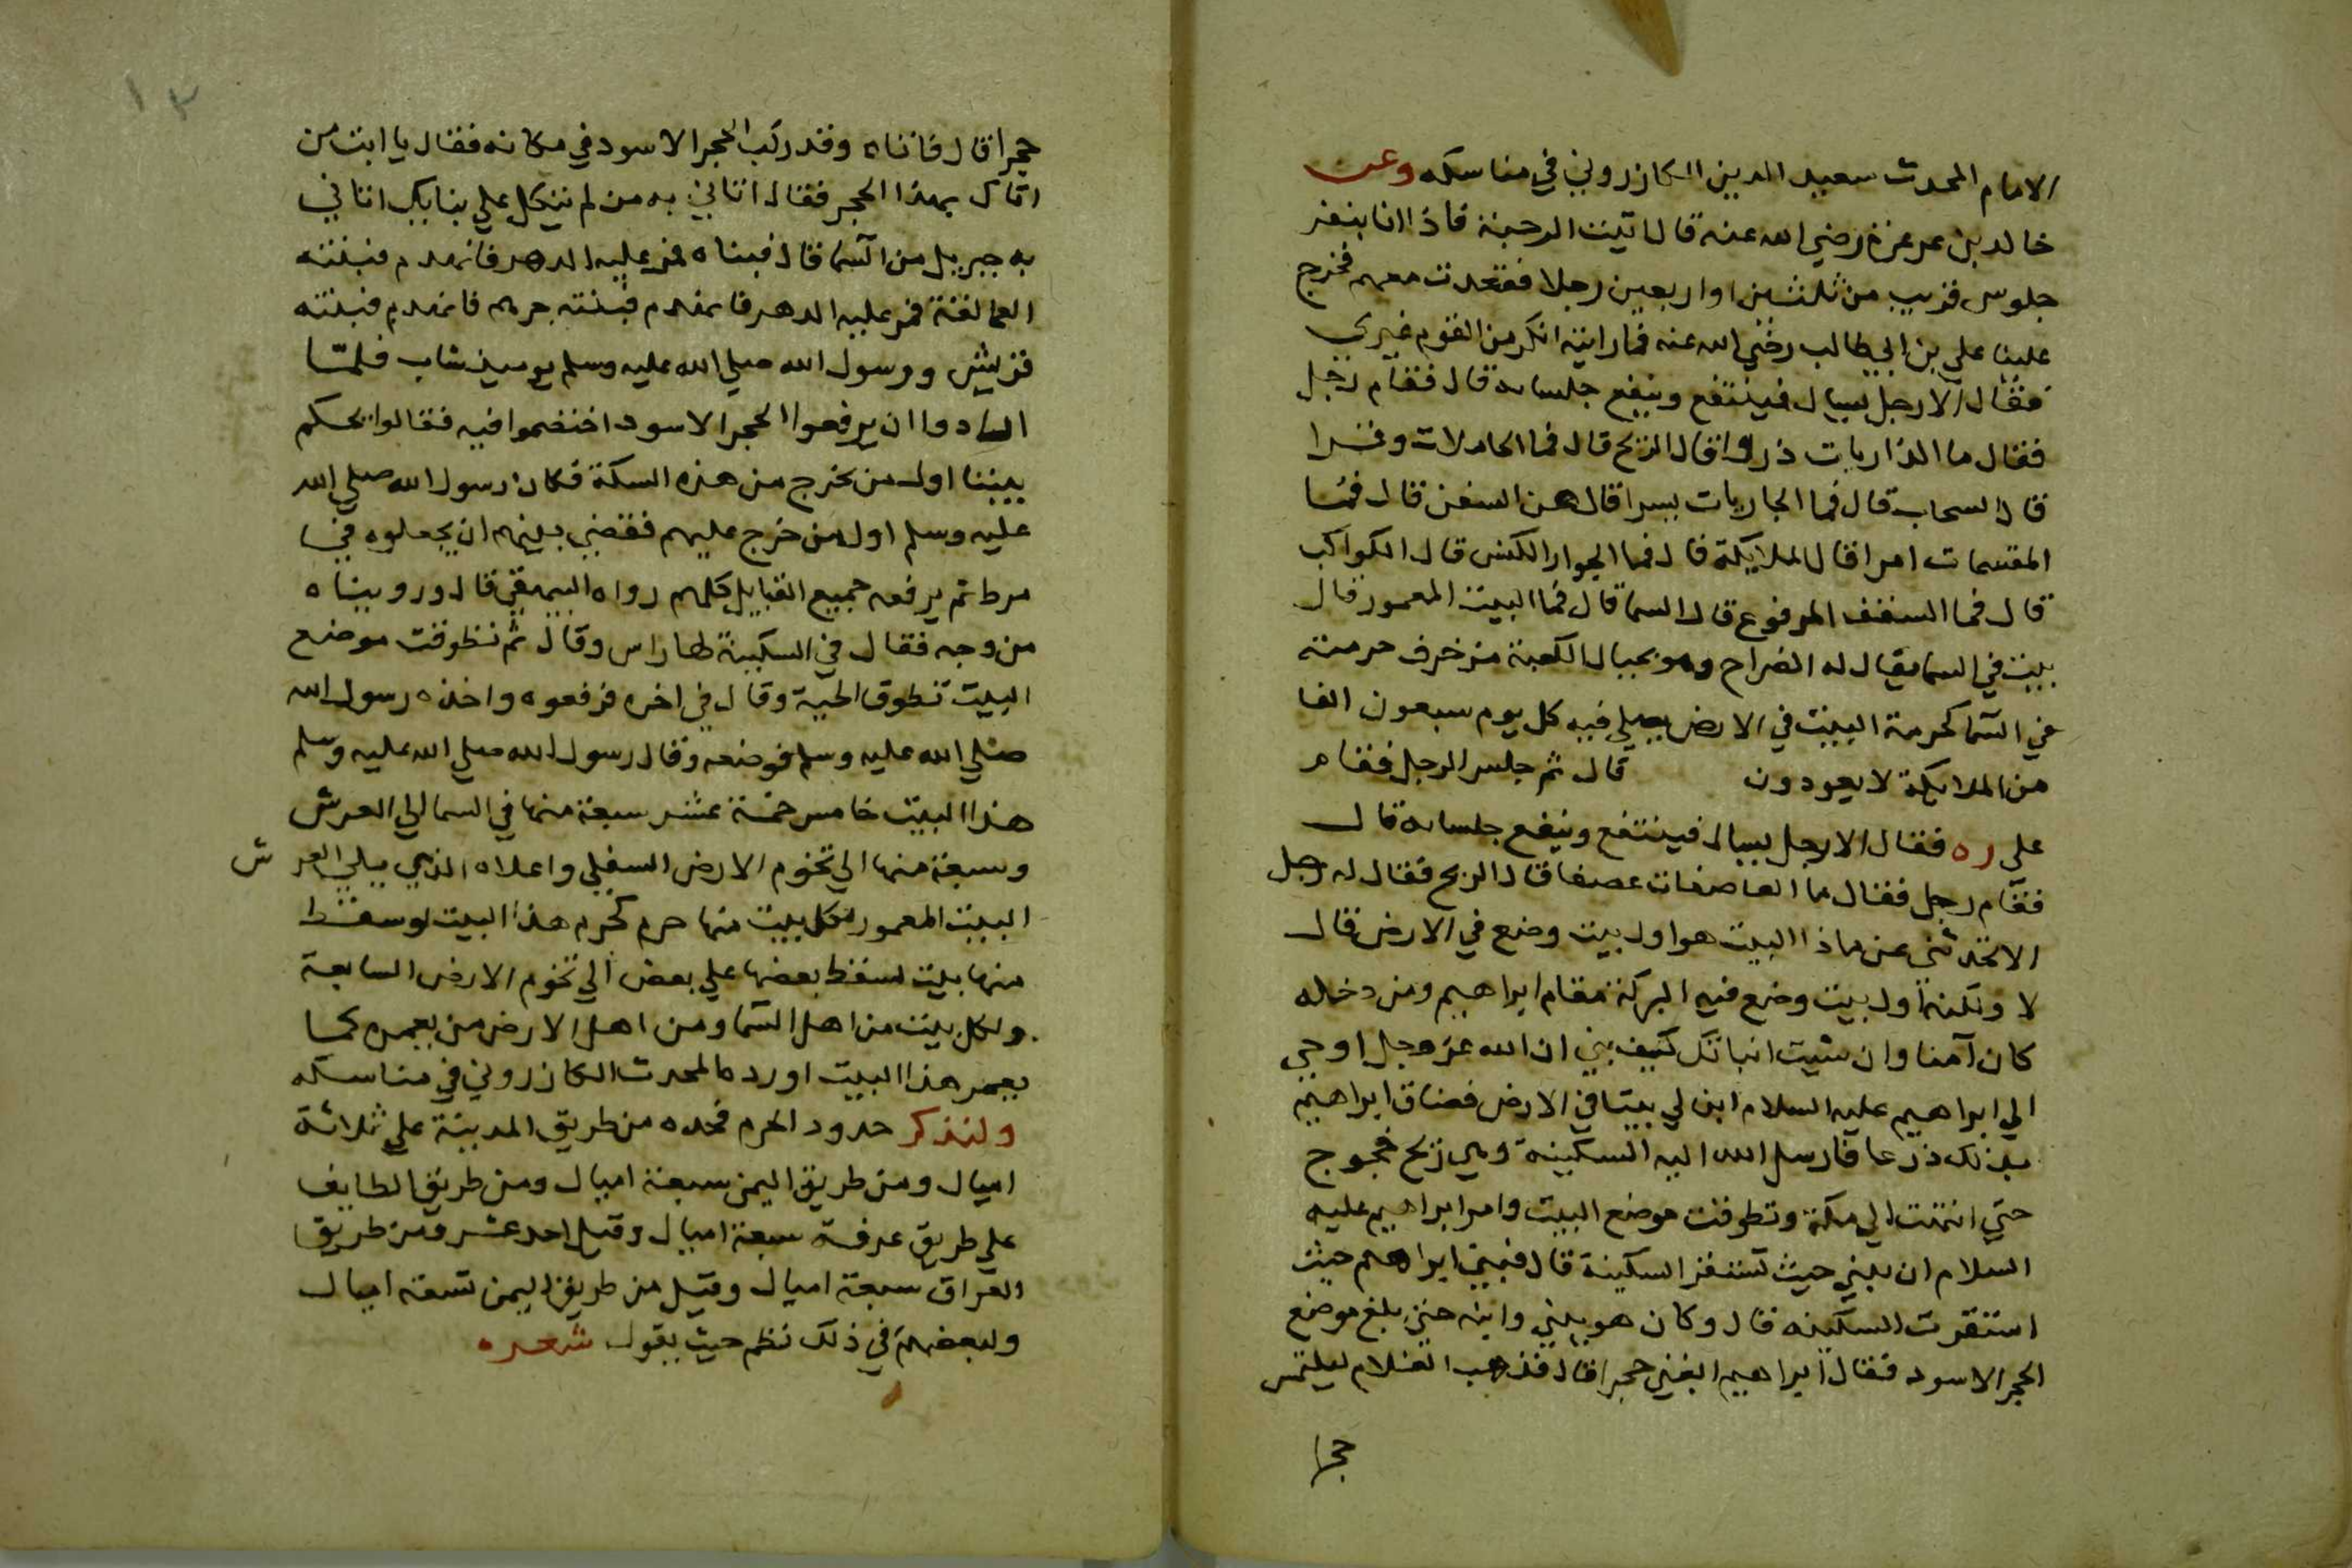 الامام المحدث سعيد الدين الكازروني في مناسكه وعن
خالد بن عرعرة رضي الله عنه قال اتيت الرحبة فاذا انا بنفر
جلوس قريب من ثلثين او اربعين رجلا فقعدت معهم فخرج
علينا علي بن ابي طالب رضي الله عنه فما رايته انكر من القوم غيري
فقال الا رجل يسال فينتفع وينفع جلساه قال فقام رجل
فقال ما الذاريات ذروا قال الريح قال فما الحاملات وقرا
قال السحاب قال فما الجاريات يسرا قال هن السفن قال فما
المقسمات امرا قال الملايكة قال فما الجوار الكنس قال الكواكب
قال فما السقف المرفوع قال السما قال فما البيت المعمور قال
بيت في السما يقال له الضراح وهو بحيال الكعبة من خرف حرمته
في السما كحرمة البيت في الارض يصلي فيه كل يوم سبعون الفا
من الملايكة لا يعودون قال ثم جلس الرجل فقام
علي ره فقال الا رجل يسال فينتفع وينفع جلساه قال
فقام رجل فقال ما العاصفات عصفا قال الريح فقال له رجل
الا تحدثني عن ماذا البيت هو اول بيت وضع في الارض قال
لا ولكنه اول بيت وضع فيه البركة مقام ابراهيم ومن دخله
كان آمنا وان شيت انباتك كيف بني ان الله عز وجل اوحي
الي ابراهيم عليه السلام ابن لي بيتا في الارض فضاق ابراهيم
بذلك ذرعا فارسل الله اليه السكينة وهي ريح خجوج
حتي انتهت الي مكة وتطوقت موضع البيت وامر ابراهيم عليه
السلام ان يبني حيث تستقر السكينة قال فبني ابراهيم حيث
استقرت السكينه قال وكان هو يبني وابنه حتي بلغ موضع
الحجر الاسود فقال ابراهيم ابغني حجرا قال فذهب الغلام ليلتمس
حجرا
١٣
حجرا قال فاتاه وقد ركب الحجر الاسود في مكانه فقال يا ابت من
اتاك بهذا الحجر فقال اتاني به من لم يتكل علي بنايك اتاني
به جبريل من السما قال فبناه فمر عليه الدهر فانهدم فبنته
العمالقة فمر عليه الدهر فانهدم فبنته جرهم فانهدم فبنته
قريش ورسول الله صلي الله عليه وسلم يوميذ شاب فلمّا
ارادوا ان يرفعوا الحجر الاسود اختصموا فيه فقالوا يحكم
بيننا اول من يخرج من هذه السكة فكان رسول الله صلي الله
عليه وسلم اول من خرج عليهم فقضي بينهم ان يجعلوه في
مرط ثم يرفعه جميع القبايل كلهم رواه البيهقي قال ورويناه
من وجه فقال في السكينة لها راس وقال ثم تطوقت موضع
البيت تطوق الحية وقال في اخره فرفعوه واخذه رسول الله
صلي الله عليه وسلم فوضعه وقال رسول الله صلي الله عليه وسلم
هذا البيت خامس خمسة عشر سبعة منها في السما الي العرش
وسبعة منها الي تخوم الارض السفلي واعلاه الذي يلي العر ش
البيت المعمور لكل بيت منها حرم كحرم هذا البيت لو سقط
منها بيت لسقط بعضها علي بعض الي تخوم الارض السابعة
ولكل بيت من اهل السما ومن اهل الارض من يعمره كما
يعمر هذا البيت اورده المحدث الكازروني في مناسكه
ولنذكر حدود الحرم فحده من طريق المدينة علي ثلاثة
اميال ومن طريق اليمن سبعة اميال ومن طريق الطايف
علي طريق عرفة سبعة اميال وقيل احد عشر ومن طريق
العراق سبعة اميال وقيل من طريق اليمن تسعة اميال
ولبعضهم في ذلك نظم حيث يقول شعره